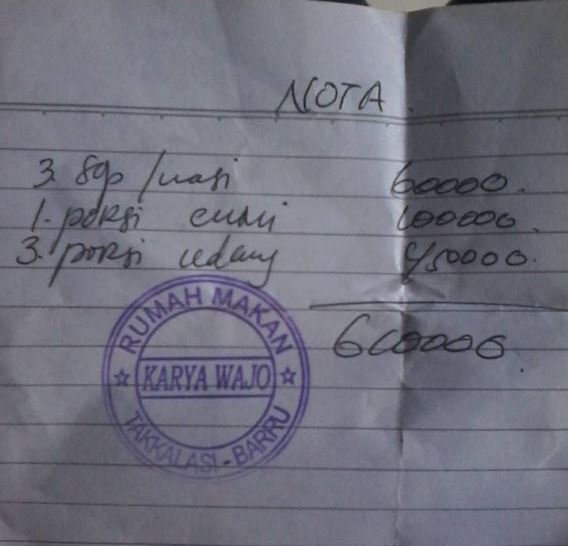 NOTA
3. sop /nasi 60000.
1. porsi cumi 100000.
3. porsi udang 450000.
610000.
RUMAH MAKAN
KARYA WAJO
TAKKALASI - BARRU